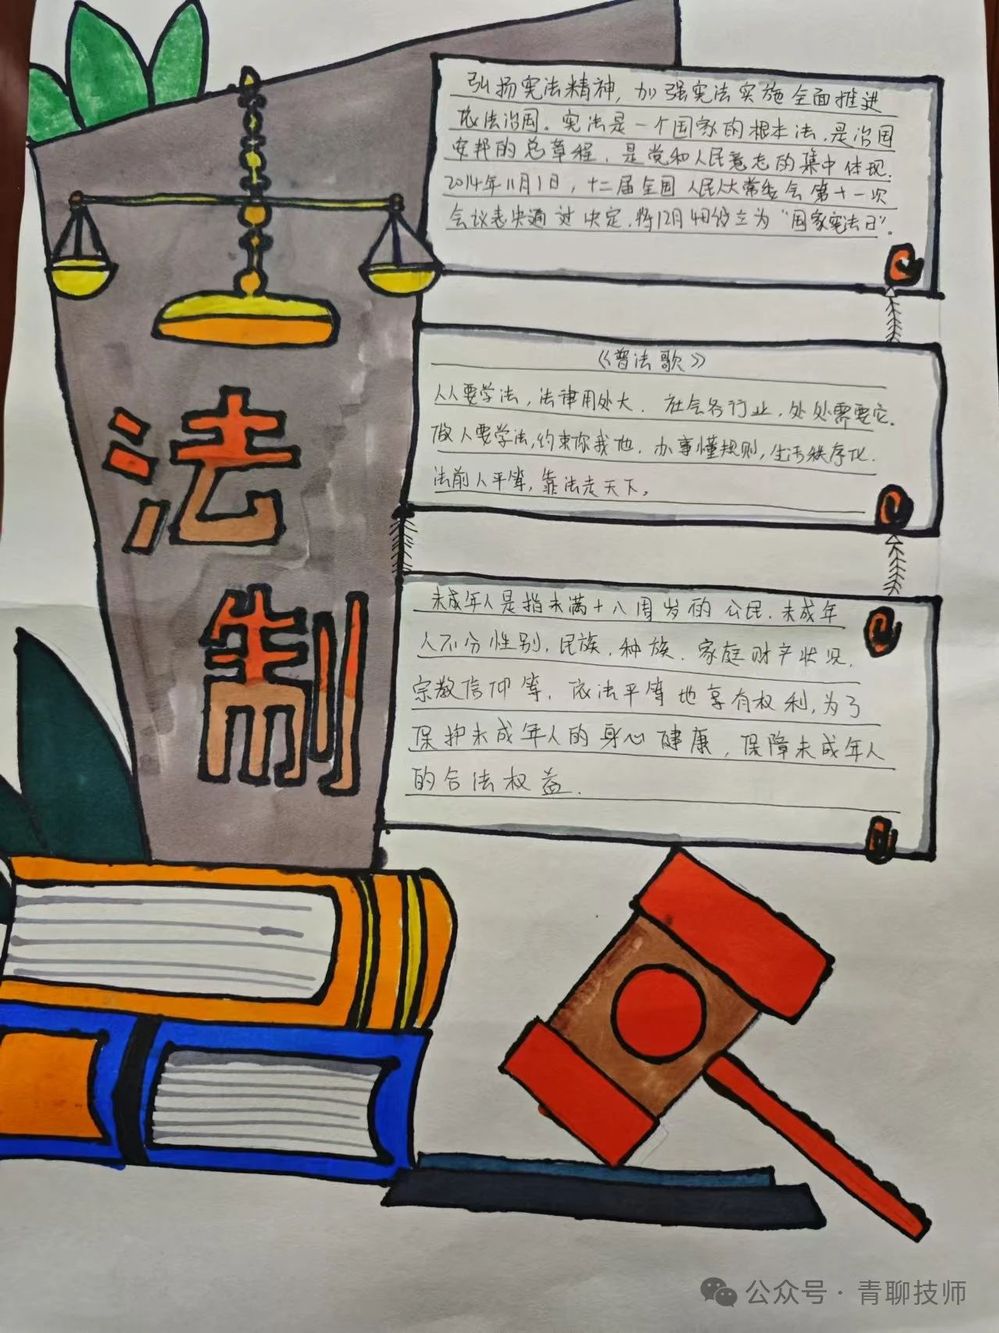 弘扬宪法精神，加强宪法实施全面推进
依法治国。宪法是一个国家的根本法，是治国
安邦的总章程，是党和人民意志的集中体现。
2014年11月1日，十二届全国人民代大常委会第十一次
会议表决通过决定，将12月4日设立为“国家宪法日”。
《普法歌》
人人要学法，法律用处大，社会各行业，处处需要它。
做人要学法，约束你我他，办事懂规则，生活秩序化。
法前人平等，靠法走天下。
未成年人是指未满十八周岁的公民，未成年
人不分性别，民族，种族，家庭财产状况，
宗教信仰等，依法平等地享有权利，为了
保护未成年人的身心健康，保障未成年人
的合法权益．
法
制
公众号·青聊技师